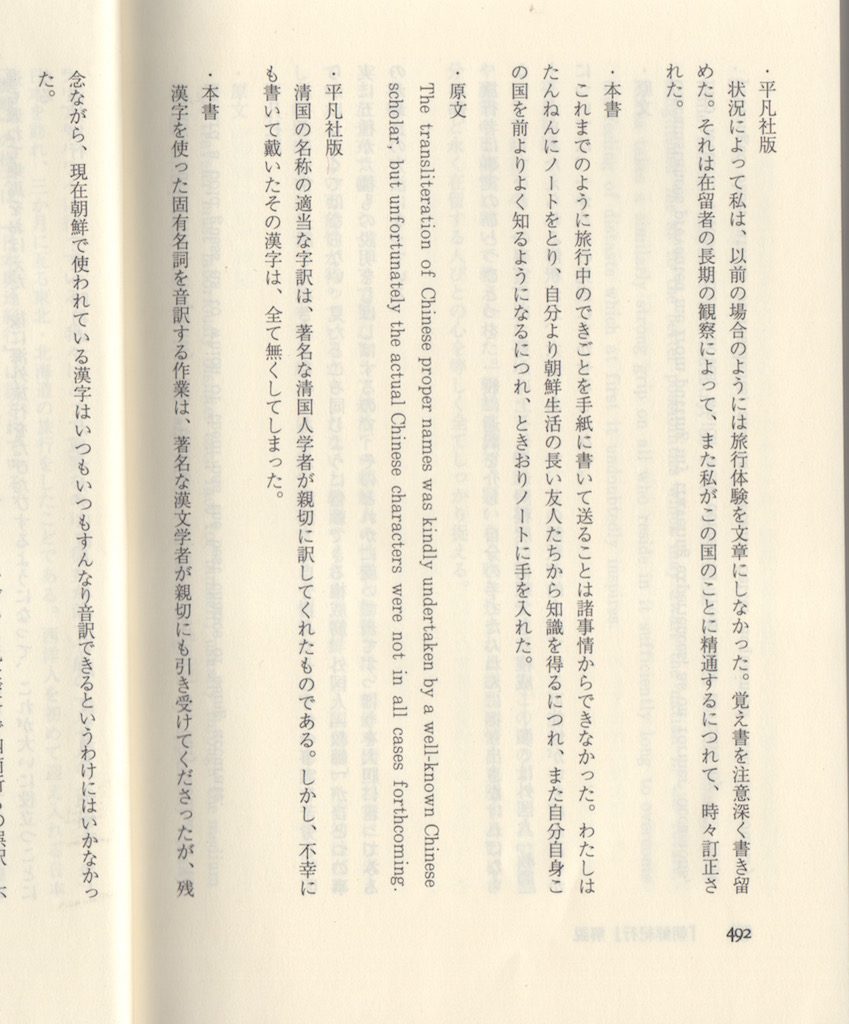 ・平凡社版
状況によって私は、以前の場合のようには旅行体験を文章にしなかった。覚え書を注意深く書き留
めた。それは在留者の長期の観察によって、また私がこの国のことに精通するにつれて、時々訂正さ
れた。
・本書
これまでのように旅行中のできごとを手紙に書いて送ることは諸事情からできなかった。わたしは
たんねんにノートをとり、自分より朝鮮生活の長い友人たちから知識を得るにつれ、また自分自身こ
の国を前よりよく知るようになるにつれ、ときおりノートに手を入れた。
・原文
The transliteration of Chinese proper names was kindly undertaken by a well-known Chinese
scholar, but unfortunately the actual Chinese characters were not in all cases forthcoming.
・平凡社版
清国の名称の適当な字訳は、著名な清国人学者が親切に訳してくれたものである。しかし、不幸に
も書いて戴いたその漢字は、全て無くしてしまった。
・本書
漢字を使った固有名詞を音訳する作業は、著名な漢文学者が親切にも引き受けてくださったが、残
念ながら、現在朝鮮で使われている漢字はいつもいつもすんなり音訳できるというわけにはいかなかっ
た。
492